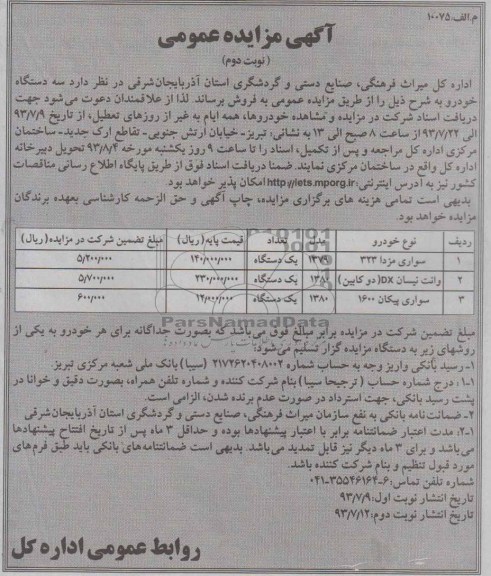 م.الف: ۱۰۰۷۵
آگهی مزایده عمومی
(نوبت دوم)
اداره کل میراث فرهنگی، صنایع دستی و گردشگری استان آذربایجان‌شرقی در نظر دارد سه دستگاه
خودرو به شرح ذیل را از طریق مزایده عمومی به فروش برساند. لذا از علاقمندان دعوت می‌شود جهت
دریافت اسناد شرکت در مزایده و مشاهده خودروها، همه ایام به غیر از روزهای تعطیل، از تاریخ ۹۳/۷/۹
الی ۹۳/۷/۲۲ از ساعت ۸ صبح الی ۱۳ به نشانی: تبریز- خیابان ارتش جنوبی- تقاطع ارک جدید- ساختمان
مرکزی اداره کل مراجعه و پس از تکمیل، اسناد را تا ساعت ۹ روز یکشنبه مورخه ۹۳/۸/۴ تحویل دبیرخانه
اداره کل واقع در ساختمان مرکزی نمایند. ضمنا دریافت اسناد فوق از طریق پایگاه اطلاع رسانی مناقصات
کشور نیز به آدرس اینترنتی: http://iets.mporg.ir امکان پذیر خواهد بود.
بدیهی است تمامی هزینه های برگزاری مزایده، چاپ آگهی و حق الزحمه کارشناسی بعهده برندگان
مزایده خواهد بود.
ردیف نوع خودرو مدل تعداد قیمت پایه (ریال) مبلغ تضمین شرکت در مزایده (ریال)
۱ سواری مزدا ۳۲۳ ۱۳۷۹ یک دستگاه ۱۴۰/۰۰۰/۰۰۰ ۵/۲۰۰/۰۰۰
۲ وانت نیسان DX (دو کابین) ۱۳۸۰ یک دستگاه ۲۳۰/۰۰۰/۰۰۰ ۵/۷۰۰/۰۰۰
۳ سواری پیکان ۱۶۰۰ ۱۳۸۰ یک دستگاه ۱۲/۰۰۰/۰۰۰ ۶۰۰/۰۰۰
ParsNamadData
مبلغ تضمین شرکت در مزایده برابر مبالغ فوق می‌باشد که بصورت جداگانه برای هر خودرو به یکی از
روشهای زیر به دستگاه مزایده گزار تسلیم می‌شود:
۱- رسید بانکی واریز وجه به حساب شماره ۲۱۷۴۶۲۰۴۰۸۰۰۲ (سیبا) بانک ملی شعبه مرکزی تبریز
۱-۱: درج شماره حساب (ترجیحا سیبا) بنام شرکت کننده و شماره تلفن همراه، بصورت دقیق و خوانا در
پشت رسید بانکی، جهت استرداد در صورت عدم برنده شدن، الزامی است.
۲- ضمانت‌نامه بانکی به نفع سازمان میراث فرهنگی، صنایع دستی و گردشگری استان آذربایجان‌شرقی
۲-۱: مدت اعتبار ضمانتنامه برابر با اعتبار پیشنهادها بوده و حداقل ۳ ماه پس از تاریخ افتتاح پیشنهادها
می‌باشد و برای ۳ ماه دیگر نیز قابل تمدید می‌باشد. بدیهی است ضمانتنامه‌های بانکی باید طبق فرم‌های
مورد قبول تنظیم و بنام شرکت کننده باشد.
شماره تلفن تماس: ۶-۳۵۵۴۶۱۶۴-۰۴۱
تاریخ انتشار نوبت اول: ۹۳/۷/۹
تاریخ انتشار نوبت دوم: ۹۳/۷/۱۲
روابط عمومی اداره کل